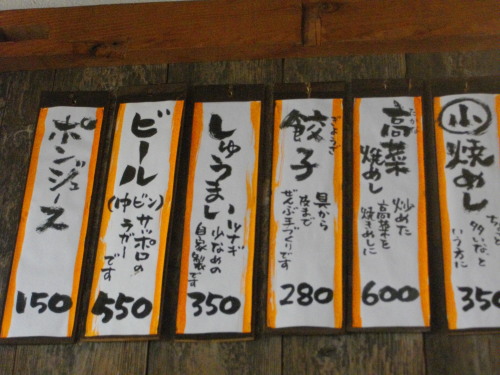 小焼めし
多いなと
いう方に
350
高菜
焼めし
炒めた
高菜を
焼きめしに
600
餃子
ぎょうざ
具から
皮まで
ぜんぶ手づくりです
280
しゅうまい
ツナギ
少なめの
自家製です
350
ビール
(中ビン)
サッポロの
ラガー
です
550
ポンジュース
150